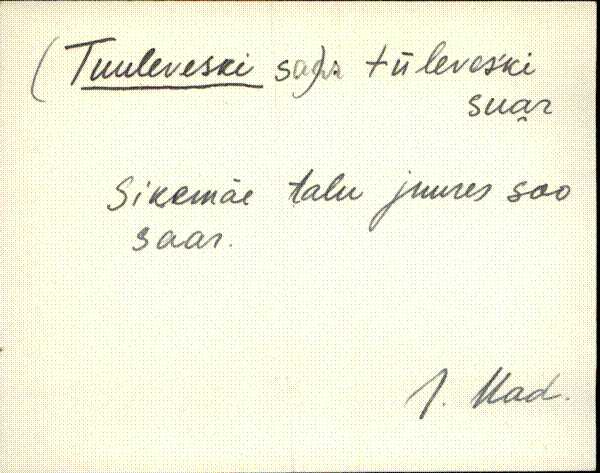 (Tuuleveski saar) tüleveski
suạr
Sikemäe talu juures soo
saar.
J. Mad.